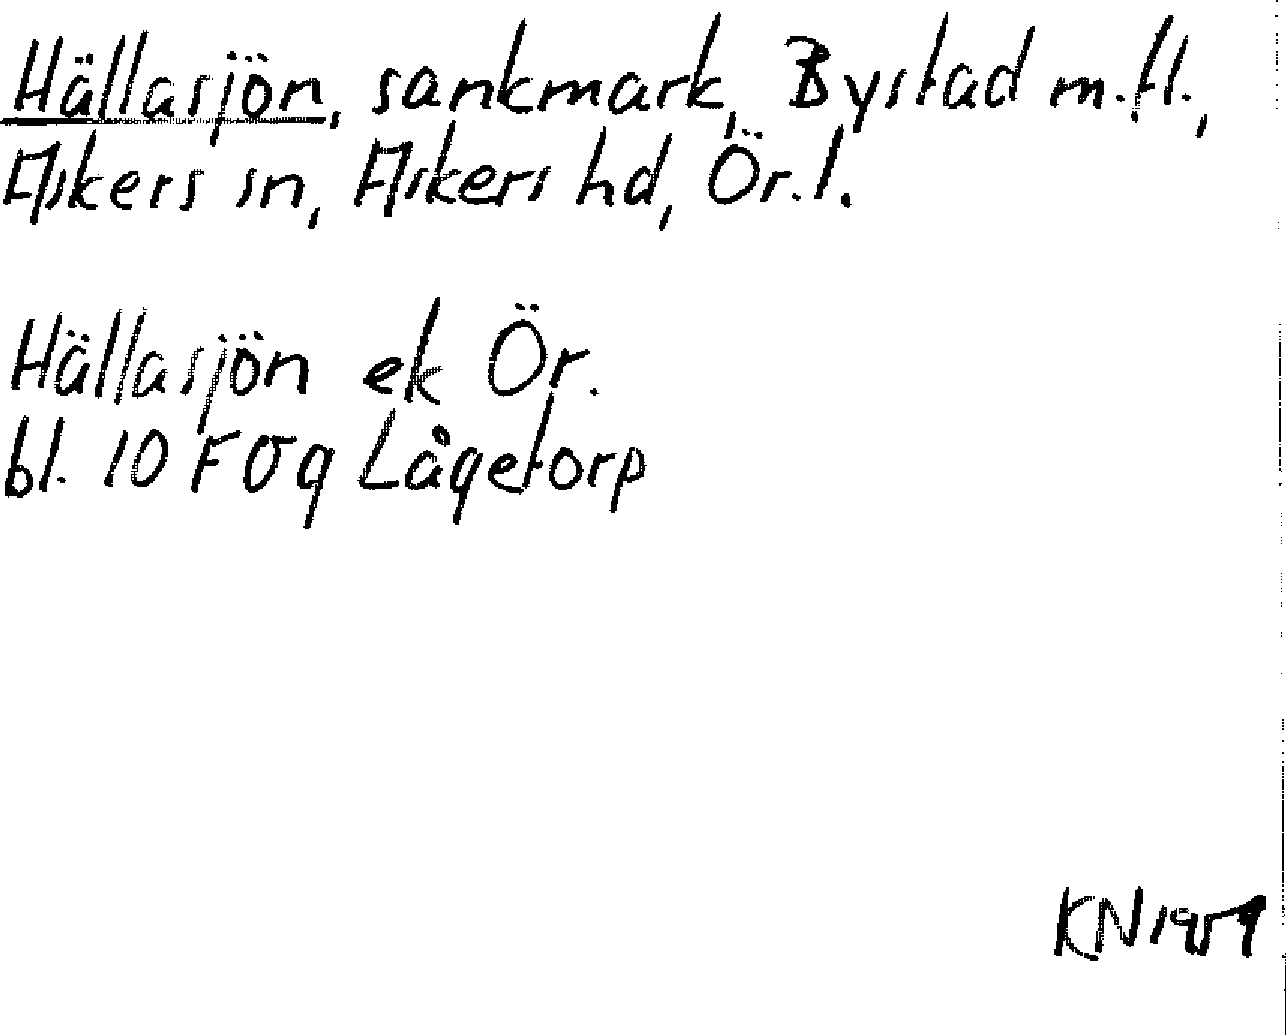 Hällasjön, sankmark, Bystad m.fl.,
Askers sn, Askers hd, Ör.l.
Hällasjön ek Ör.
bl. 10 F 0g Lågetorp
KN 1959